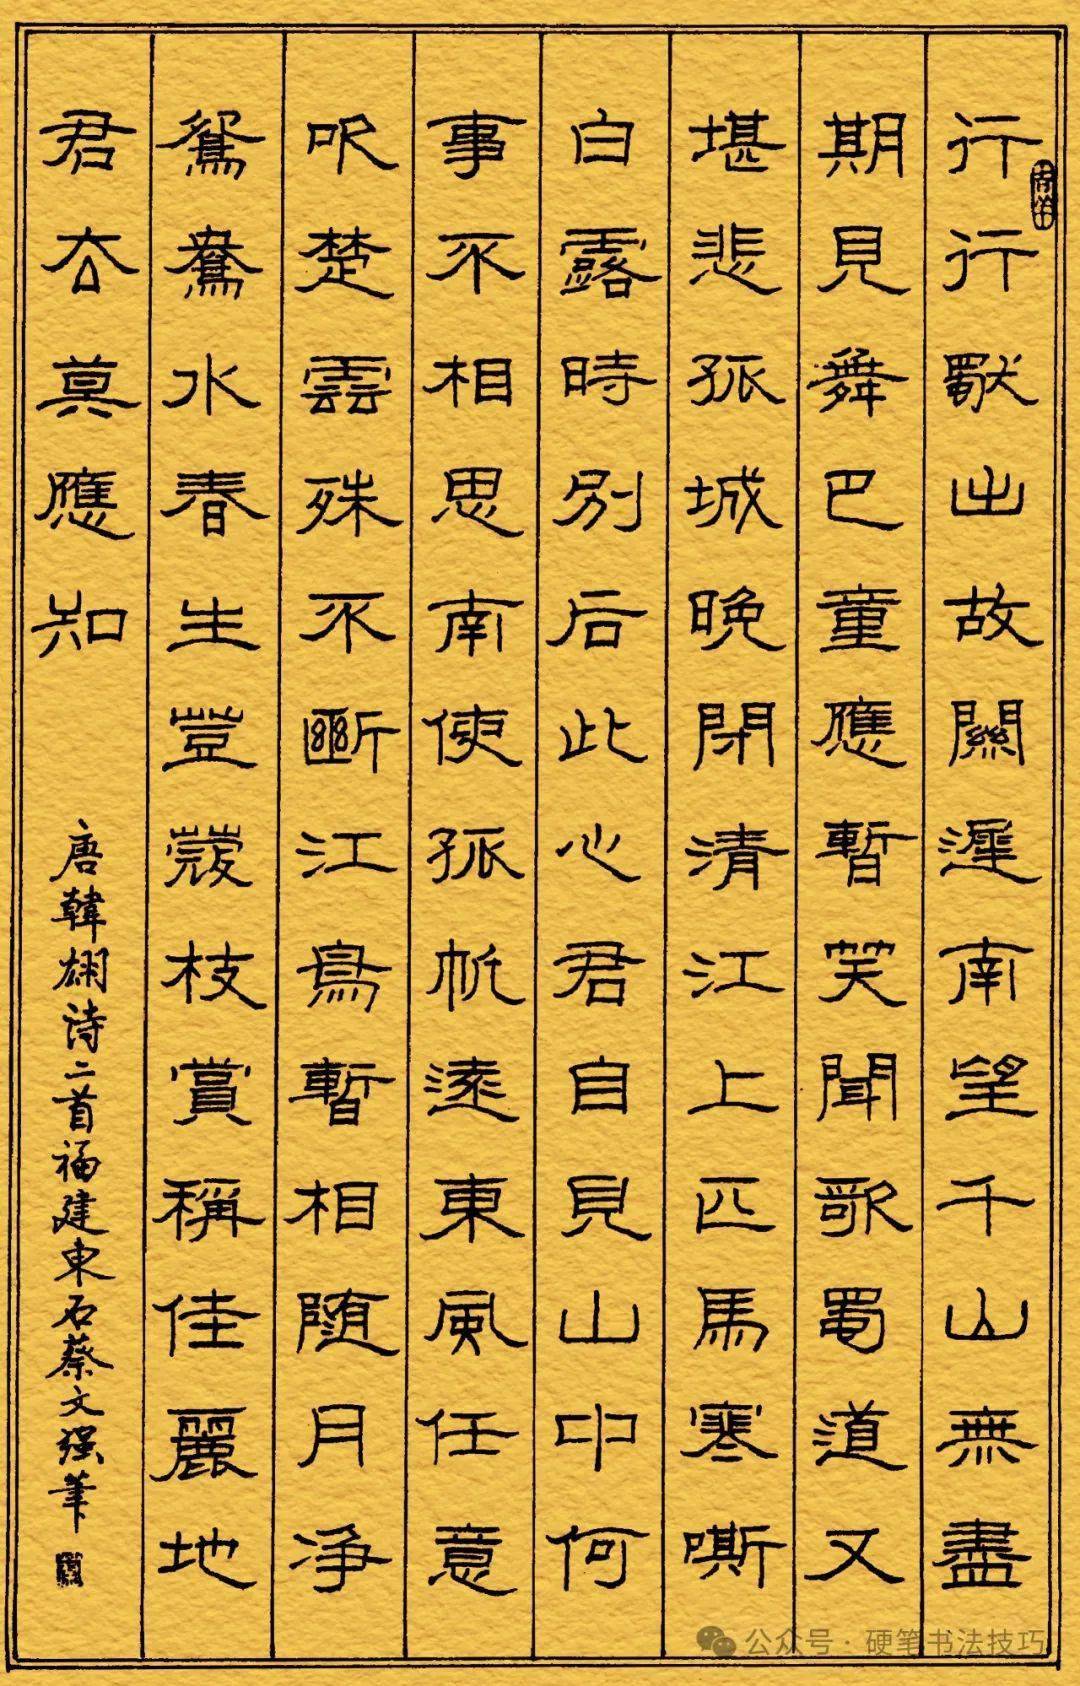 行行獨出故關遲南望千山無盡
期見舞巴童應暫笑聞歌蜀道又
堪悲孤城晚閉清江上匹馬寒嘶
白露時別后此心君自見山中何
事不相思南使孤帆遠東風任意
吹楚雲殊不斷江鳥暫相随月净
鴛鴦水春生荳蔻枝賞稱佳麗地
君去莫應知
唐韓翃诗二首福建東石蔡文强筆
公众号·硬笔书法技巧